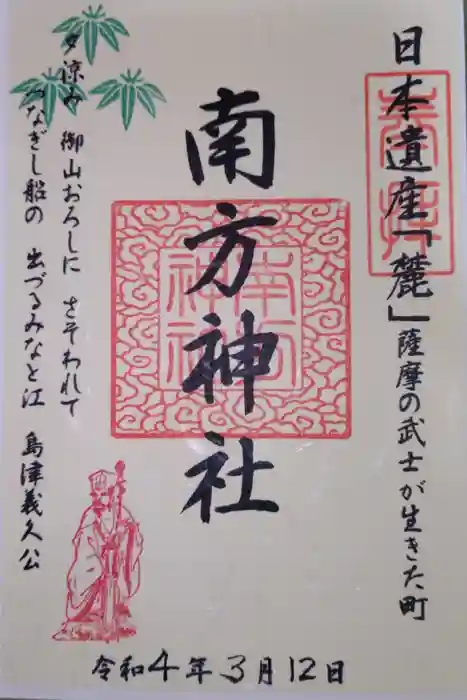 日本遺産「麓」薩摩の武士が生きた町
奉拝
南方神社
南方神社
夕涼み 御山おろしに さそわれて
つなぎし船の 出づるみなと江 島津義久公
令和4年3月12日